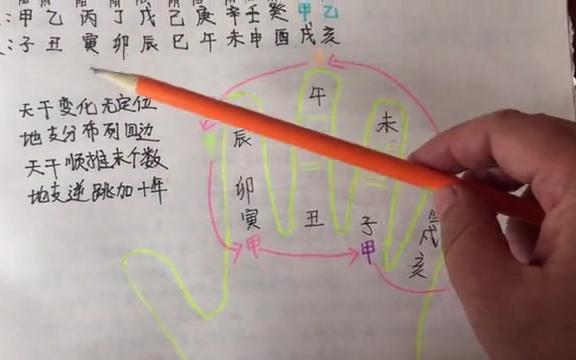 :甲乙丙丁戊己庚辛壬癸甲乙
:子丑寅卯辰巳午未申酉戌亥
天干变化无定位
地支分布列四边
天干顺推末个数
地支逆跳加十年
午
辰
未
卯
寅
丑
子
戌
亥
甲
甲